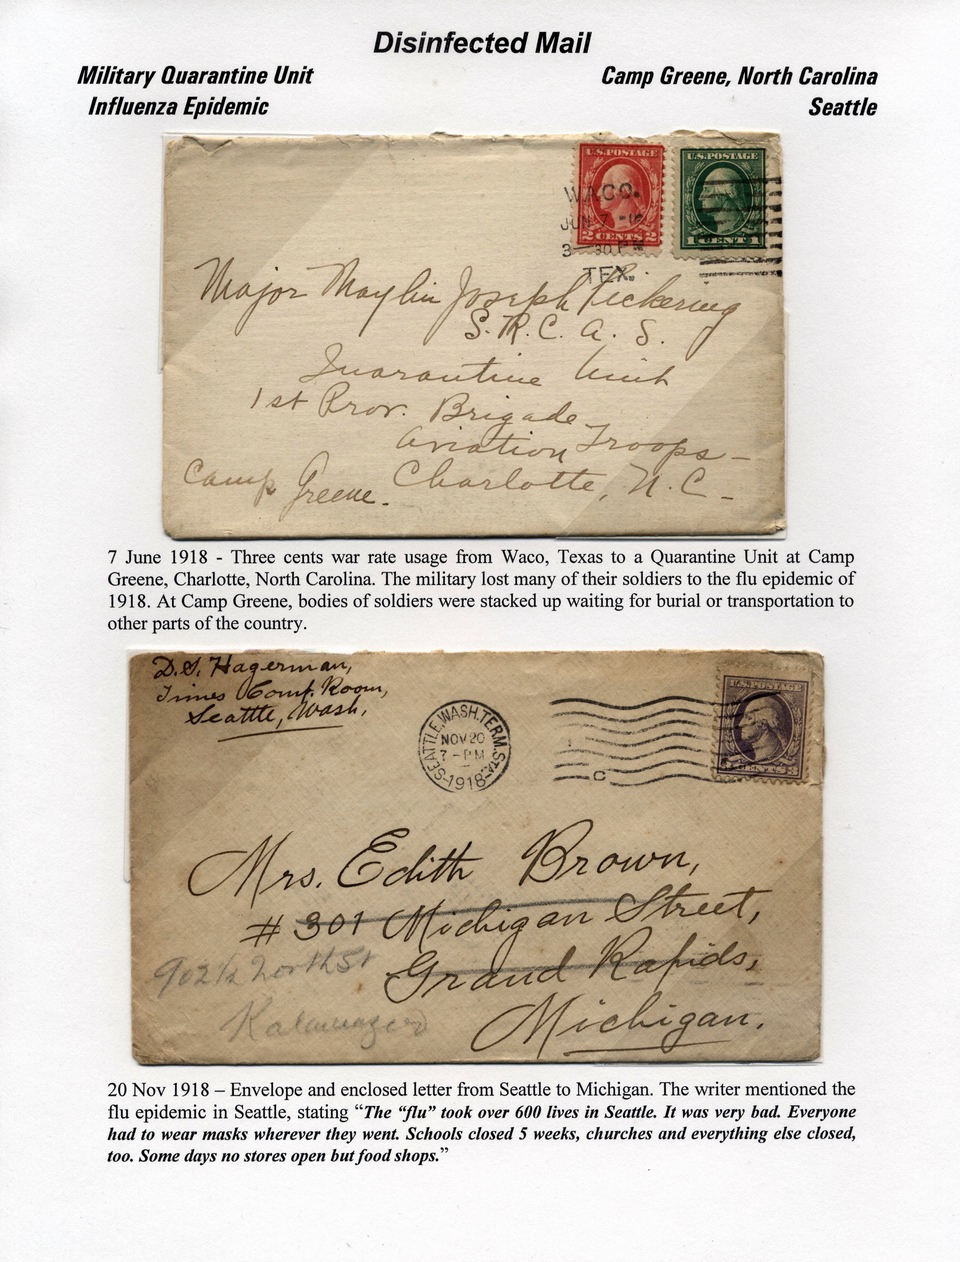 Disinfected Mail
Military Quarantine Unit
Camp Greene, North Carolina
Influenza Epidemic
Seattle
U.S. POSTAGE
2 CENTS 2
U.S. POSTAGE
1 CENT 1
WACO.
JUN 7
3-30 P M
TEX.
Major Maylin Joseph Pickering
S. R. C. A. S.
Quarantine Unit
1st Prov. Brigade
Aviation Troops -
Camp Greene. Charlotte, N. C. -
7 June 1918 - Three cents war rate usage from Waco, Texas to a Quarantine Unit at Camp
Greene, Charlotte, North Carolina. The military lost many of their soldiers to the flu epidemic of
1918. At Camp Greene, bodies of soldiers were stacked up waiting for burial or transportation to
other parts of the country.
D.S. Hagerman,
Times Comp. Room,
Seattle, Wash,
SEATTLE, WASH. TERM. STA.
NOV 20
7 - PM
1918
C
U.S. POSTAGE
3 CENTS 3
Mrs. Edith Brown,
# 301 Michigan Street,
902 1/2 North St
Grand Rapids,
Kalamazoo
Michigan.
20 Nov 1918 – Envelope and enclosed letter from Seattle to Michigan. The writer mentioned the
flu epidemic in Seattle, stating “The “flu” took over 600 lives in Seattle. It was very bad. Everyone
had to wear masks wherever they went. Schools closed 5 weeks, churches and everything else closed,
too. Some days no stores open but food shops.”